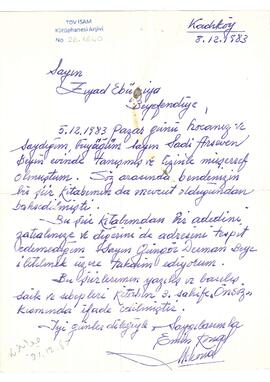 TDV İSAM
Kütüphanesi Arşivi
No
Kadıköy
8.12.1983
Sayın
Ziyad Ebüzziya
Beyefendiye,
5.12.1983 Pazar günü hocanız ve
saydığım, büyüğüm Sayın Sadi
Beyin evinde tanışma ve sizinle müşerref
olmuştum. Söz arasında bendenizin
bir şiir kitabının da mevcut olduğundan
bahsedilmişti
- Bu şiir kitabımdan bir adedini
zatıalinize ve diğerini de adresini tespit
edemediğim Sayın Güngör Beye
iletilmek üzere takdim ediyorum.
- Bu şiirlerimin yazılış ve
saik ve sebepleri kitabın 3. sahife Önsöz
kısmında ifade edilmiştir.
- İyi günler dileğiyle Saygılarımla
Emin